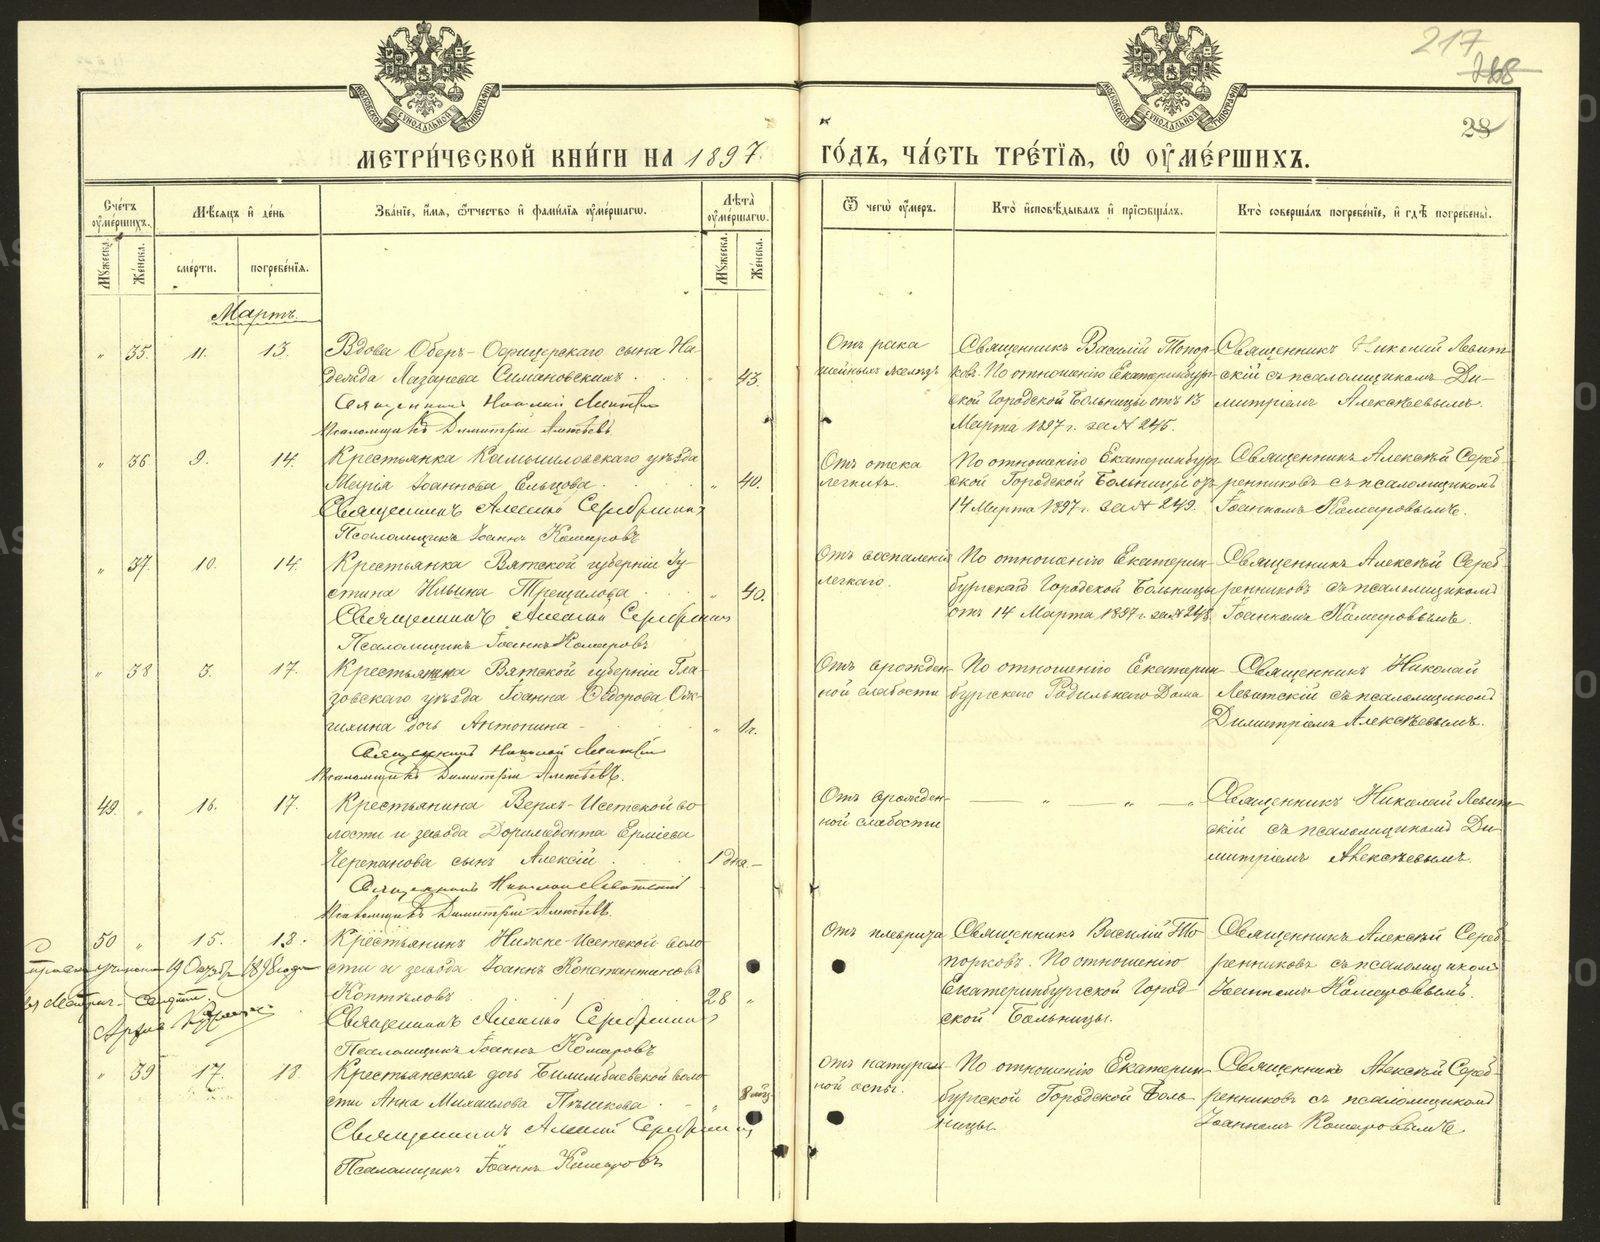 217
28
МЕТРИ́ЧЕСКОЙ КНИ́ГИ НА 1897.
ГО́ДЪ, ЧА́СТЬ ТРЕ́ТІѦ, Ѡ҆ ОУ҆МЕ́РШИХЪ.
Сче́тъ оу҆ме́ршихъ.
Мѣ́сяцъ и҆ де́нь
Зва́нїе, и҆́мя, ѻ҆́тчество и҆ фами́лїя оу҆ме́ршагѡ.
Лѣ́та оу҆ме́ршагѡ.
Ѿ чегѡ̀ оу҆́меръ.
Кто̀ и҆сповѣ́дывалъ и҆ прїѡбща́лъ.
Кто̀ соверша́лъ погребе́нїе, и҆ гдѣ̀ погребены̀.
Мꙋ́жеска.
Же́нска.
сме́рти.
погребе́нїя.
Мꙋ́жеска.
Же́нска.
Мартъ.
" 35. 11. 13.
Вдова Оберъ-Офицерскаго сына На-
дежда Лазарева Симановскихъ
" 43.
Священникъ Николай Левитскій
Псаломщикъ Димитрій Алексѣевъ
Отъ рака
шейныхъ железъ
Священникъ Василій Топор-
ковъ. По отношенію Екатеринбург-
ской Городской Больницы отъ 13
Марта 1897 г. за № 245.
Священникъ Николай Левит-
скій съ псаломщикомъ Ди-
митріемъ Алексѣевымъ.
" 36 9. 14.
Крестьянка Камышловскаго уѣзда
Марія Іоаннова Ельцова
" 40.
Священникъ Алексій Серебренниковъ
Псаломщикъ Іоаннъ Комаровъ
Отъ отека
легкихъ.
По отношенію Екатеринбург-
ской Городской Больницы отъ
14 Марта 1897 г. за № 249.
Священникъ Алексѣй Сереб-
ренниковъ съ псаломщикомъ
Іоанномъ Комаровымъ.
" 37. 10. 14.
Крестьянка Вятской губерніи Іу-
стина Ильина Трещилова
" 40.
Священникъ Алексій Серебренниковъ
Псаломщикъ Іоаннъ Комаровъ
Отъ воспаленія
легкаго.
По отношенію Екатерин-
бургской Городской Больницы
отъ 14 Марта 1897 г. за № 248.
Священникъ Алексѣй Сереб-
ренниковъ съ псаломщикомъ
Іоанномъ Комаровымъ.
" 38 3. 17.
Крестьянина Вятской губерніи Гла-
зовскаго уѣзда Іоанна Ѳедорова
дочь Антонина
"
Священникъ Николай Левитскій
Псаломщикъ Димитрій Алексѣевъ.
Отъ врожден-
ной слабости
По отношенію Екатерин-
бургскаго Родильнаго Дома
Священникъ Николай
Левитскій съ псаломщикомъ
Димитріемъ Алексѣевымъ.
49. " 16. 17.
Крестьянина Верхъ-Исетской во-
лости и завода Доримедонта Ерміева
Черепанова сынъ Алексій
1 дня. —
Священникъ Николай Левитскій
Псаломщикъ Димитрій Алексѣевъ.
Отъ врожден-
ной слабости
— " — " — "
Священникъ Николай Левит-
скій съ псаломщикомъ Ди-
митріемъ Алексѣевымъ.
50 " 15. 18.
Крестьянинъ Нижне-Исетской воло-
сти и завода Іоаннъ Константиновъ
Коптѣловъ
28 "
Священникъ Алексій Серебренниковъ
Псаломщикъ Іоаннъ Комаровъ
19 Октября 1898 года
Отъ плеврита
Священникъ Василій То-
порковъ. По отношенію
Екатеринбургской Город-
ской Больницы.
Священникъ Алексѣй Сереб-
ренниковъ съ псаломщикомъ
Іоанномъ Комаровымъ.
" 39 17. 18
Крестьянская дочь Билимбаевской воло-
сти Анна Михаилова Пѣшкова
"
Священникъ Алексій Серебренниковъ
Псаломщикъ Іоаннъ Комаровъ
Отъ натураль-
ной оспы.
По отношенію Екатерин-
бургской Городской Боль-
ницы.
Священникъ Алексѣй Сереб-
ренниковъ съ псаломщикомъ
Іоанномъ Комаровымъ